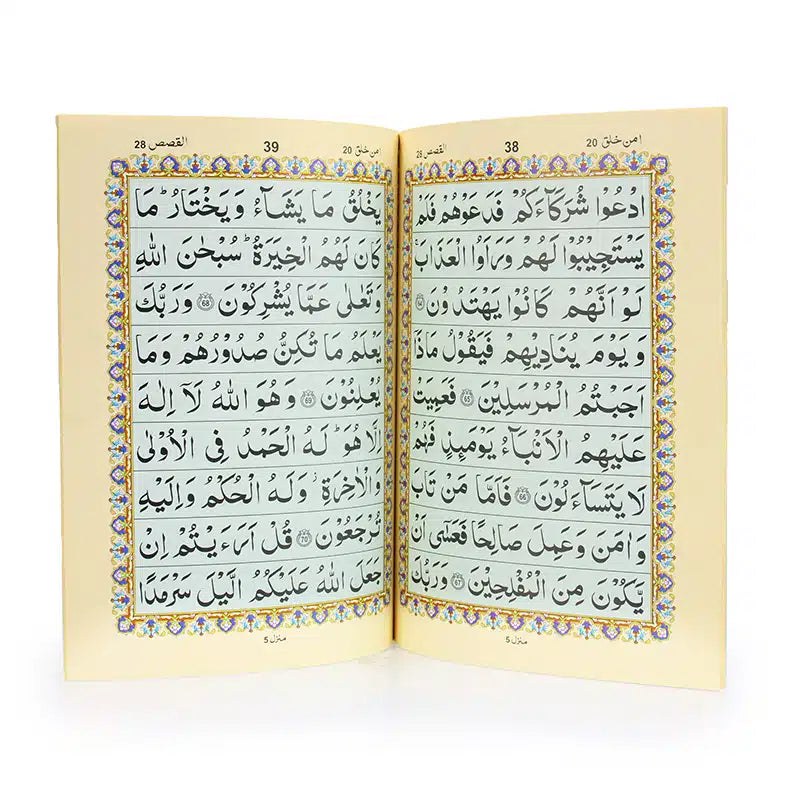 امن خلق 20
38
القصص 28
ادْعُوْا شُرَكَآءَكُمْ فَدَعَوْهُمْ فَلَمْ
يَسْتَجِيْبُوْا لَهُمْ وَرَاَوُا الْعَذَابَ ۚ
لَوْ اَنَّهُمْ كَانُوْا يَهْتَدُوْنَ 64
وَ يَوْمَ يُنَادِيْهِمْ فَيَقُوْلُ مَاذَاۤ
اَجَبْتُمُ الْمُرْسَلِيْنَ 65 فَعَمِيَتْ
عَلَيْهِمُ الْاَنْۢبَآءُ يَوْمَىِٕذٍ فَهُمْ
لَا يَتَسَآءَلُوْنَ 66 فَاَمَّا مَنْ تَابَ
وَ اٰمَنَ وَعَمِلَ صَالِحًا فَعَسٰۤى اَنْ
يَّكُوْنَ مِنَ الْمُفْلِحِيْنَ 67 وَرَبُّكَ
منزل 5
امن خلق 20
39
القصص 28
يَخْلُقُ مَا يَشَآءُ وَ يَخْتَارُ ؕ مَا
كَانَ لَهُمُ الْخِيَرَةُ ؕ سُبْحٰنَ اللّٰهِ
وَتَعٰلٰى عَمَّا يُشْرِكُوْنَ 68 وَ رَبُّكَ
يَعْلَمُ مَا تُكِنُّ صُدُوْرُهُمْ وَمَا
يُعْلِنُوْنَ 69 وَ هُوَ اللّٰهُ لَاۤ اِلٰهَ
اِلَّا هُوَ ؕ لَهُ الْحَمْدُ فِي الْاُوْلٰى
وَ الْاٰخِرَةِ ؗ وَلَهُ الْحُكْمُ وَاِلَيْهِ
تُرْجَعُوْنَ 70 قُلْ اَرَءَيْتُمْ اِنْ
جَعَلَ اللّٰهُ عَلَيْكُمُ الَّيْلَ سَرْمَدًا
منزل 5